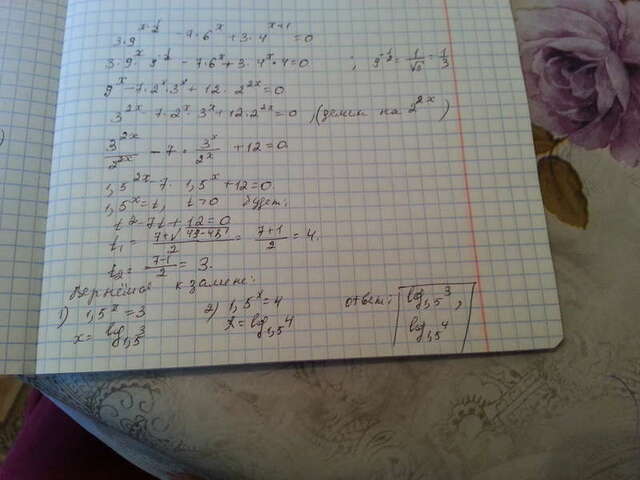 3·9^(x-1/2) - 7·6^x + 3·4^(x+1) = 0
3·9^x·9^(-1/2) - 7·6^x + 3·4^x·4 = 0 ; 9^(-1/2) = 1/√9 = 1/3
9^x - 7·2^x·3^x + 12·2^(2x) = 0
3^(2x) - 7·2^x·3^x + 12·2^(2x) = 0 , (делим на 2^(2x))
3^(2x)/2^(2x) - 7·3^x/2^x + 12 = 0
1,5^(2x) - 7·1,5^x + 12 = 0.
1,5^x = t, t>0 будет:
t² - 7t + 12 = 0
t₁ = (7+√(49-48))/2 = (7+1)/2 = 4.
t₂ = (7-1)/2 = 3.
Вернёмся к замене:
1) 1,5^x = 3 2) 1,5^x = 4 ответ: log_1,5 3 ;
x = log_1,5 3 x = log_1,5 4 log_1,5 4